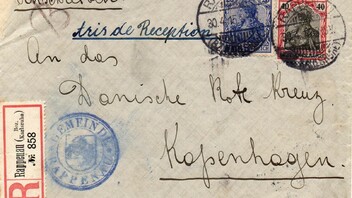 Einschreiben
Avis de Reception
An das
Dänische Rote Kreuz
Kopenhagen.
40 40
R
Rappenau
Bez.
(Karlsruhe)
№ 858
GEMEINDE
RAPPENAU